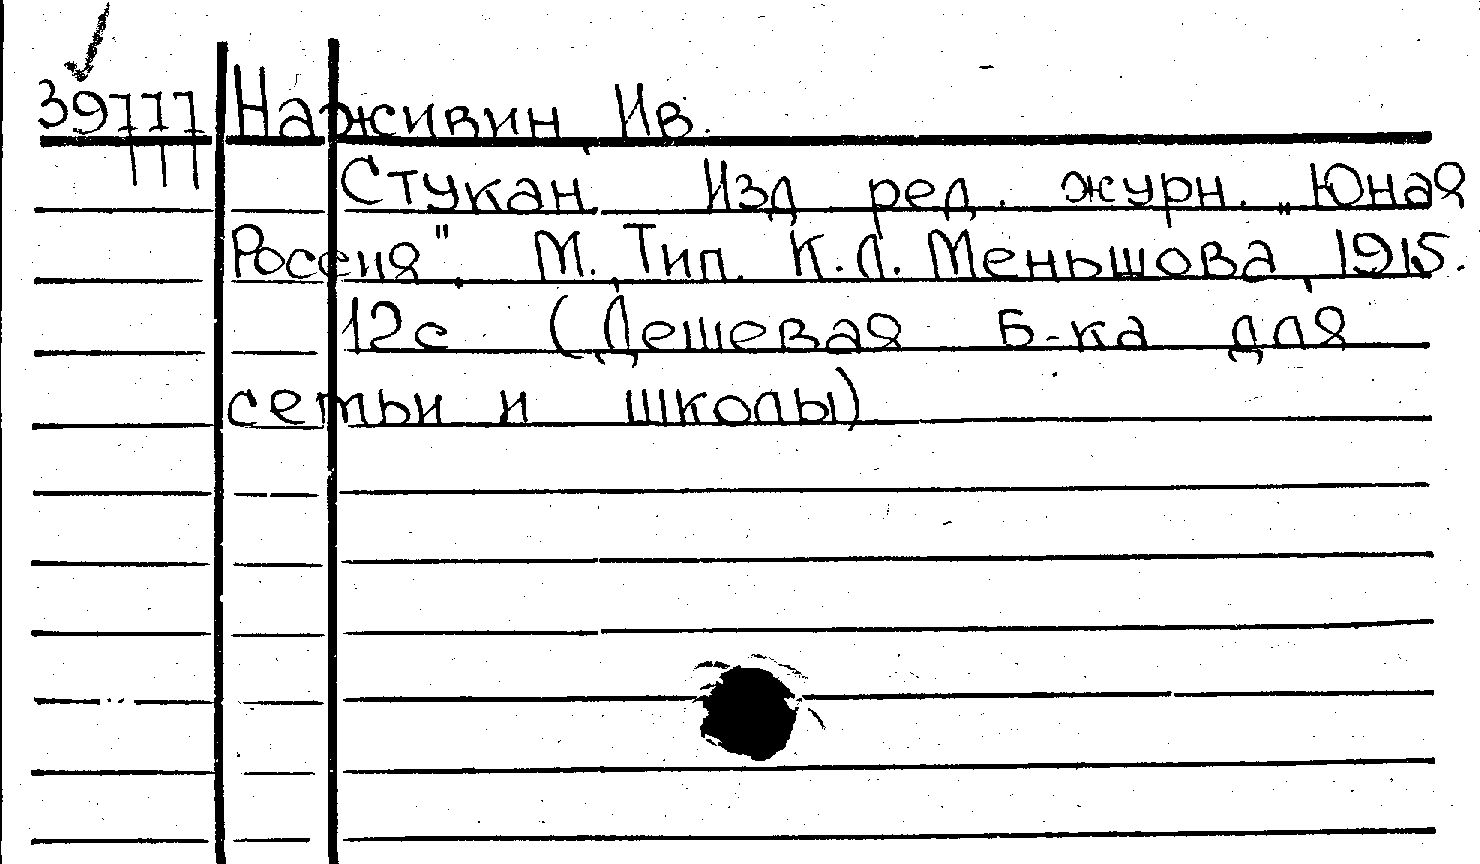 39777 Наживин, Ив.
Стукан. Изд. ред. журн. „Юная
Россия". М. Тип. К.Л. Меньшова, 1915.
12с (Дешевая б-ка для
семьи и школы)